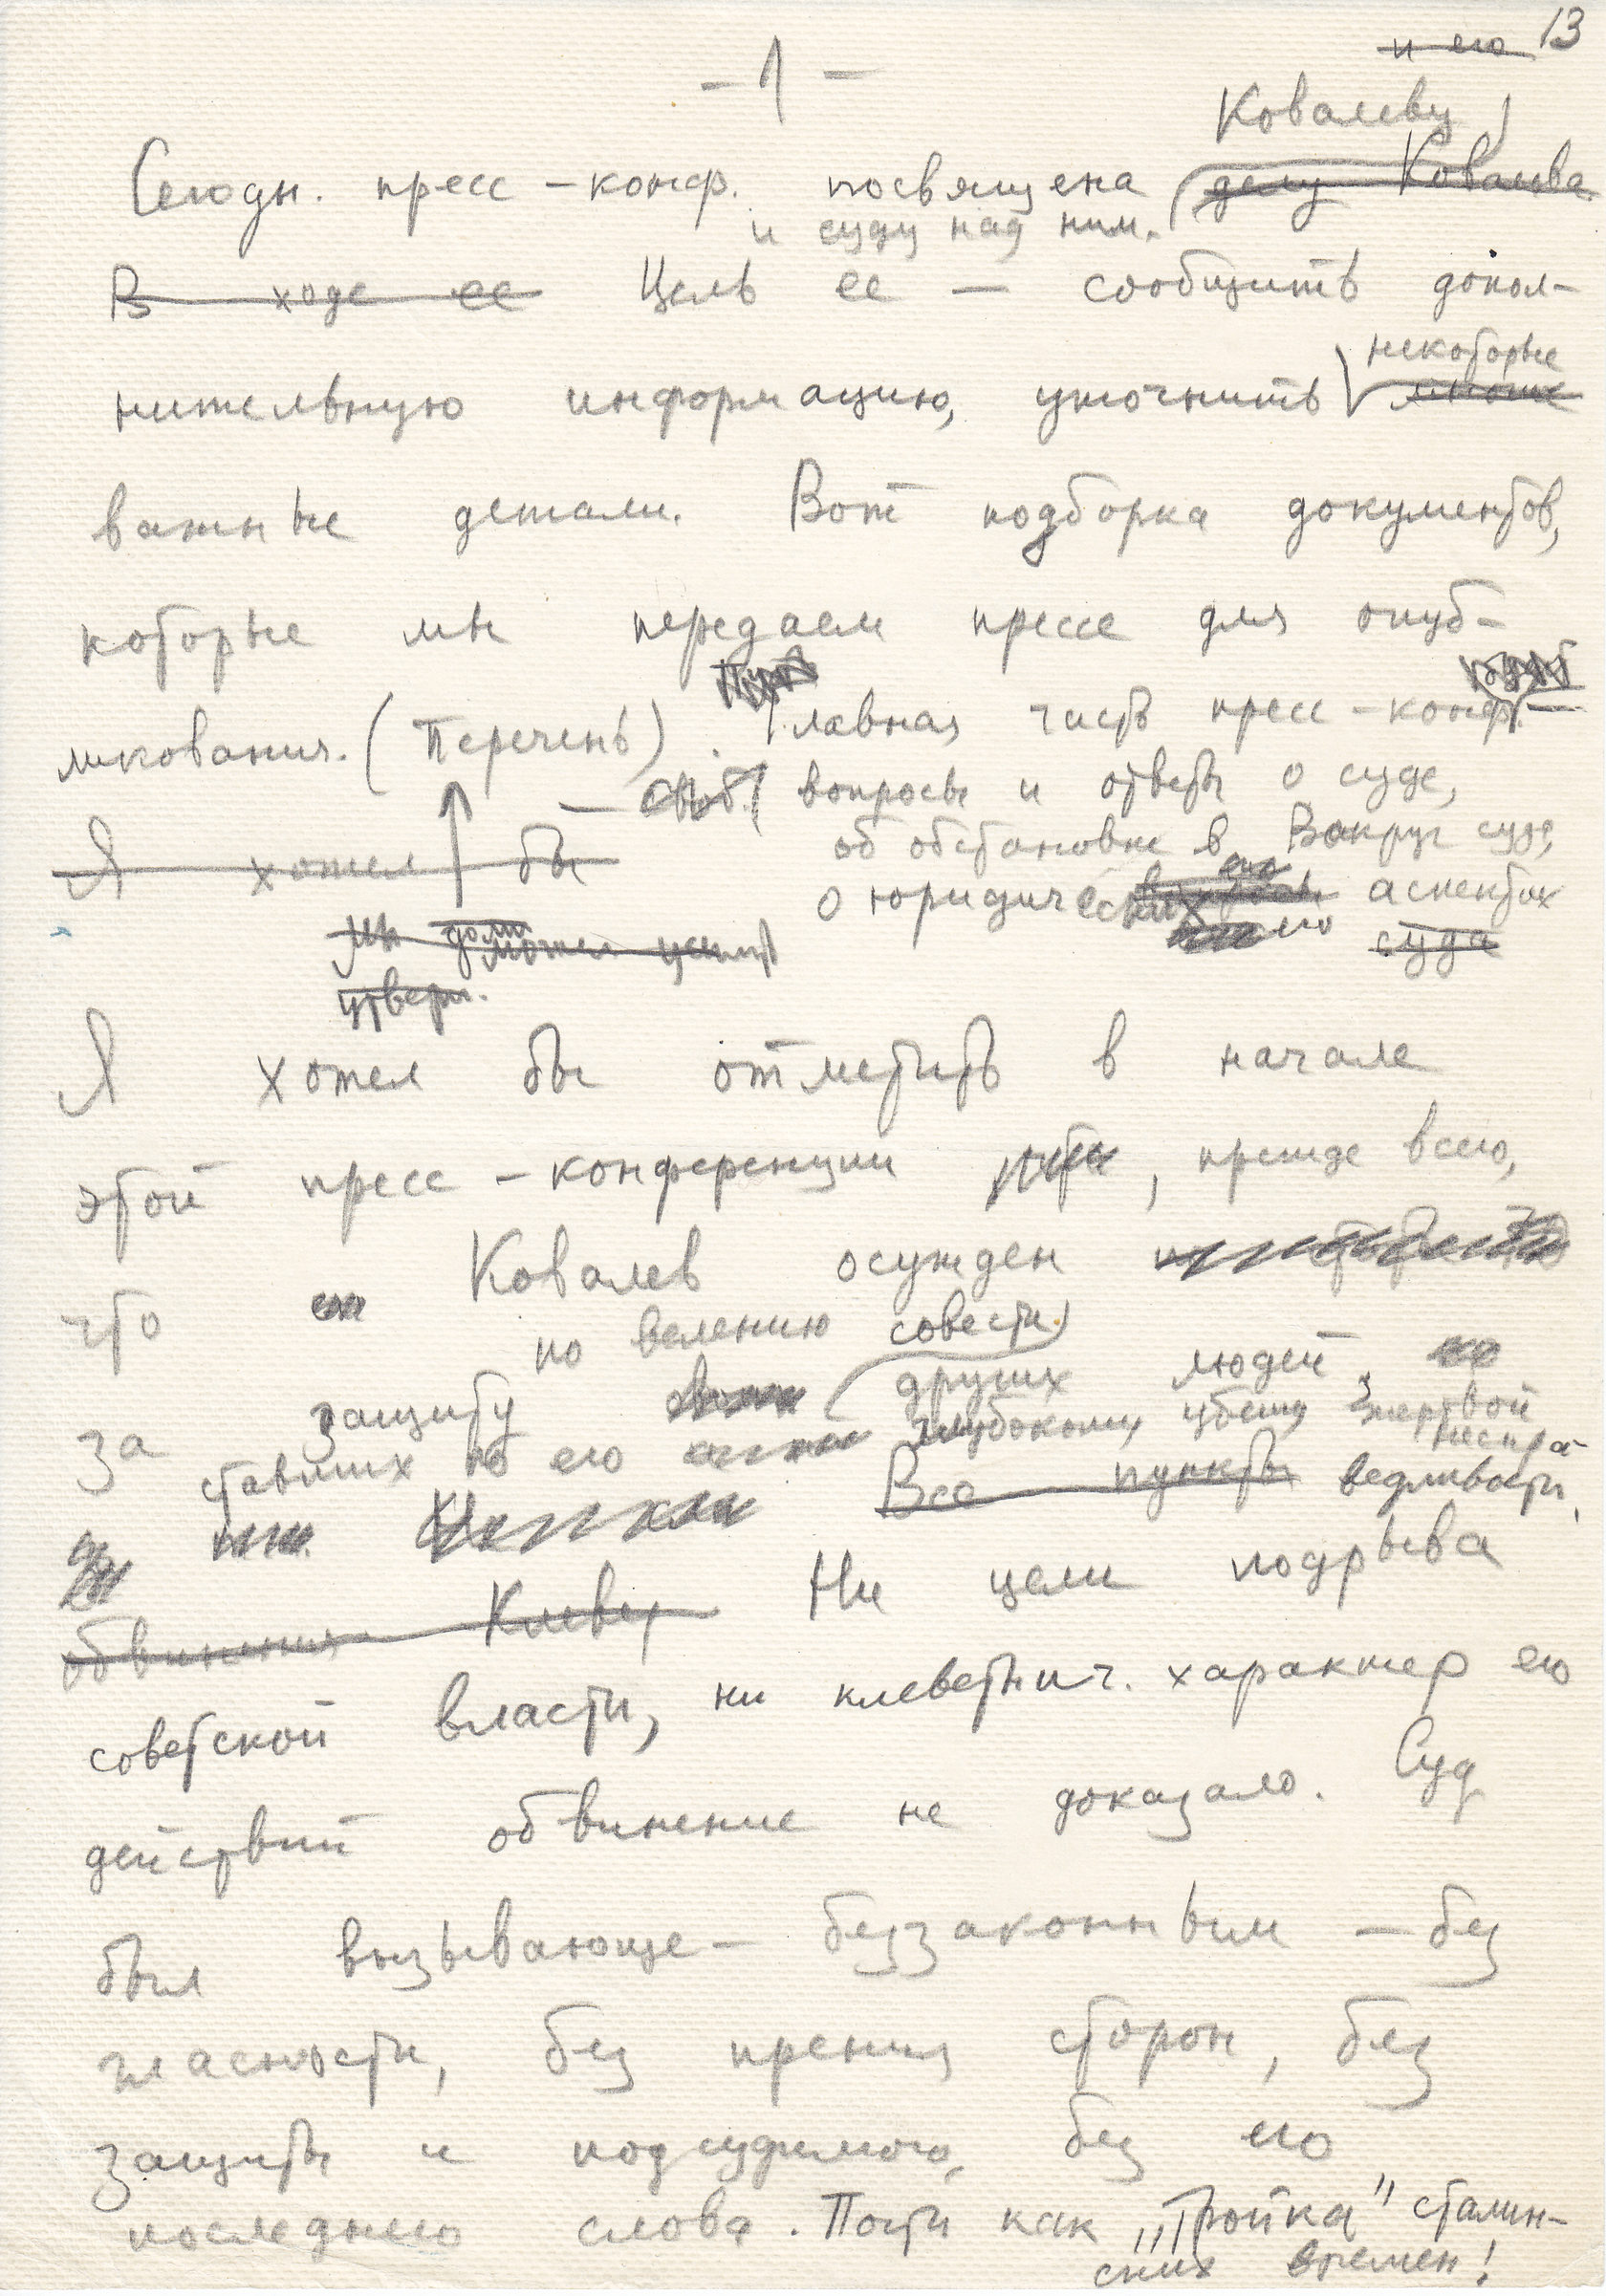 13
и его
- 1 -
Ковалеву
Сегодн. пресс-конф. посвящена делу Ковалева
и суду над ним.
В ходе ее Цель ее — сообщить допол-
некоторые
нительную информацию, уточнить многие
важные детали. Вот подборка документов,
которые мы передаем прессе для опуб-
ликования. (Перечень). Главная часть пресс-конф. —
вопросы и ответы о суде,
Я хотел бы
об обстановке в Вокруг суда,
о юридических аспектах
мы должны
его суда
утверж.
Я хотел бы отметить в начале
этой пресс-конференции, прежде всего,
что Ковалев осужден
по велению совести
за защиту других людей,
ставших по его глубокому убежд. жертвой
неспра-
Все пункты ведливости,
обвинения Клевет Ни цели подрыва
советской власти, ни клеветнич. характер его
действий обвинение не доказало. Суд
был вызывающе - беззаконным - без
гласности, без прения сторон, без
защиты и подсудимого, без его
последнего слова. Почти как „Тройка" сталин-
ских времен!